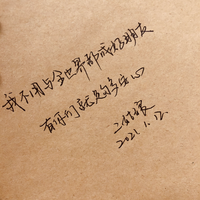 我不用与全世界都成好朋友
有你们就足够多安心
2021.1.12.